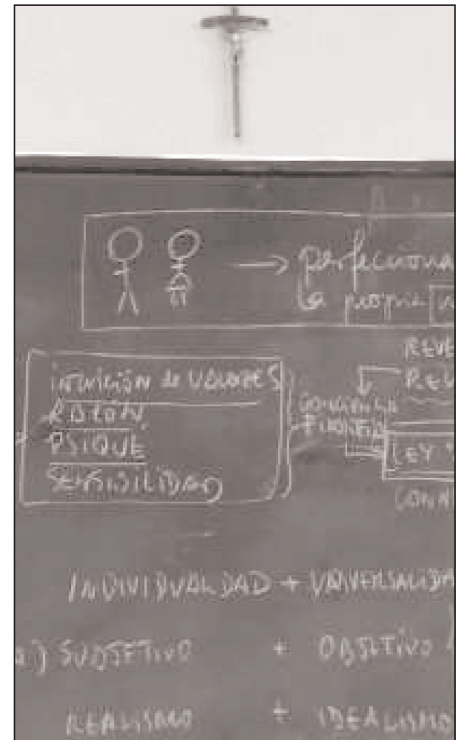 → perfecciona
la propia
REVE
intuición de VALORES
RAZÓN
PSIQUE
SENSIBILIDAD
CONCIENCIA
LEY
CONN
INDIVIDUALIDAD + UNIVERSALIDA
a) SUBJETIVO + OBJETIVO
REALISMO + IDEALISMO